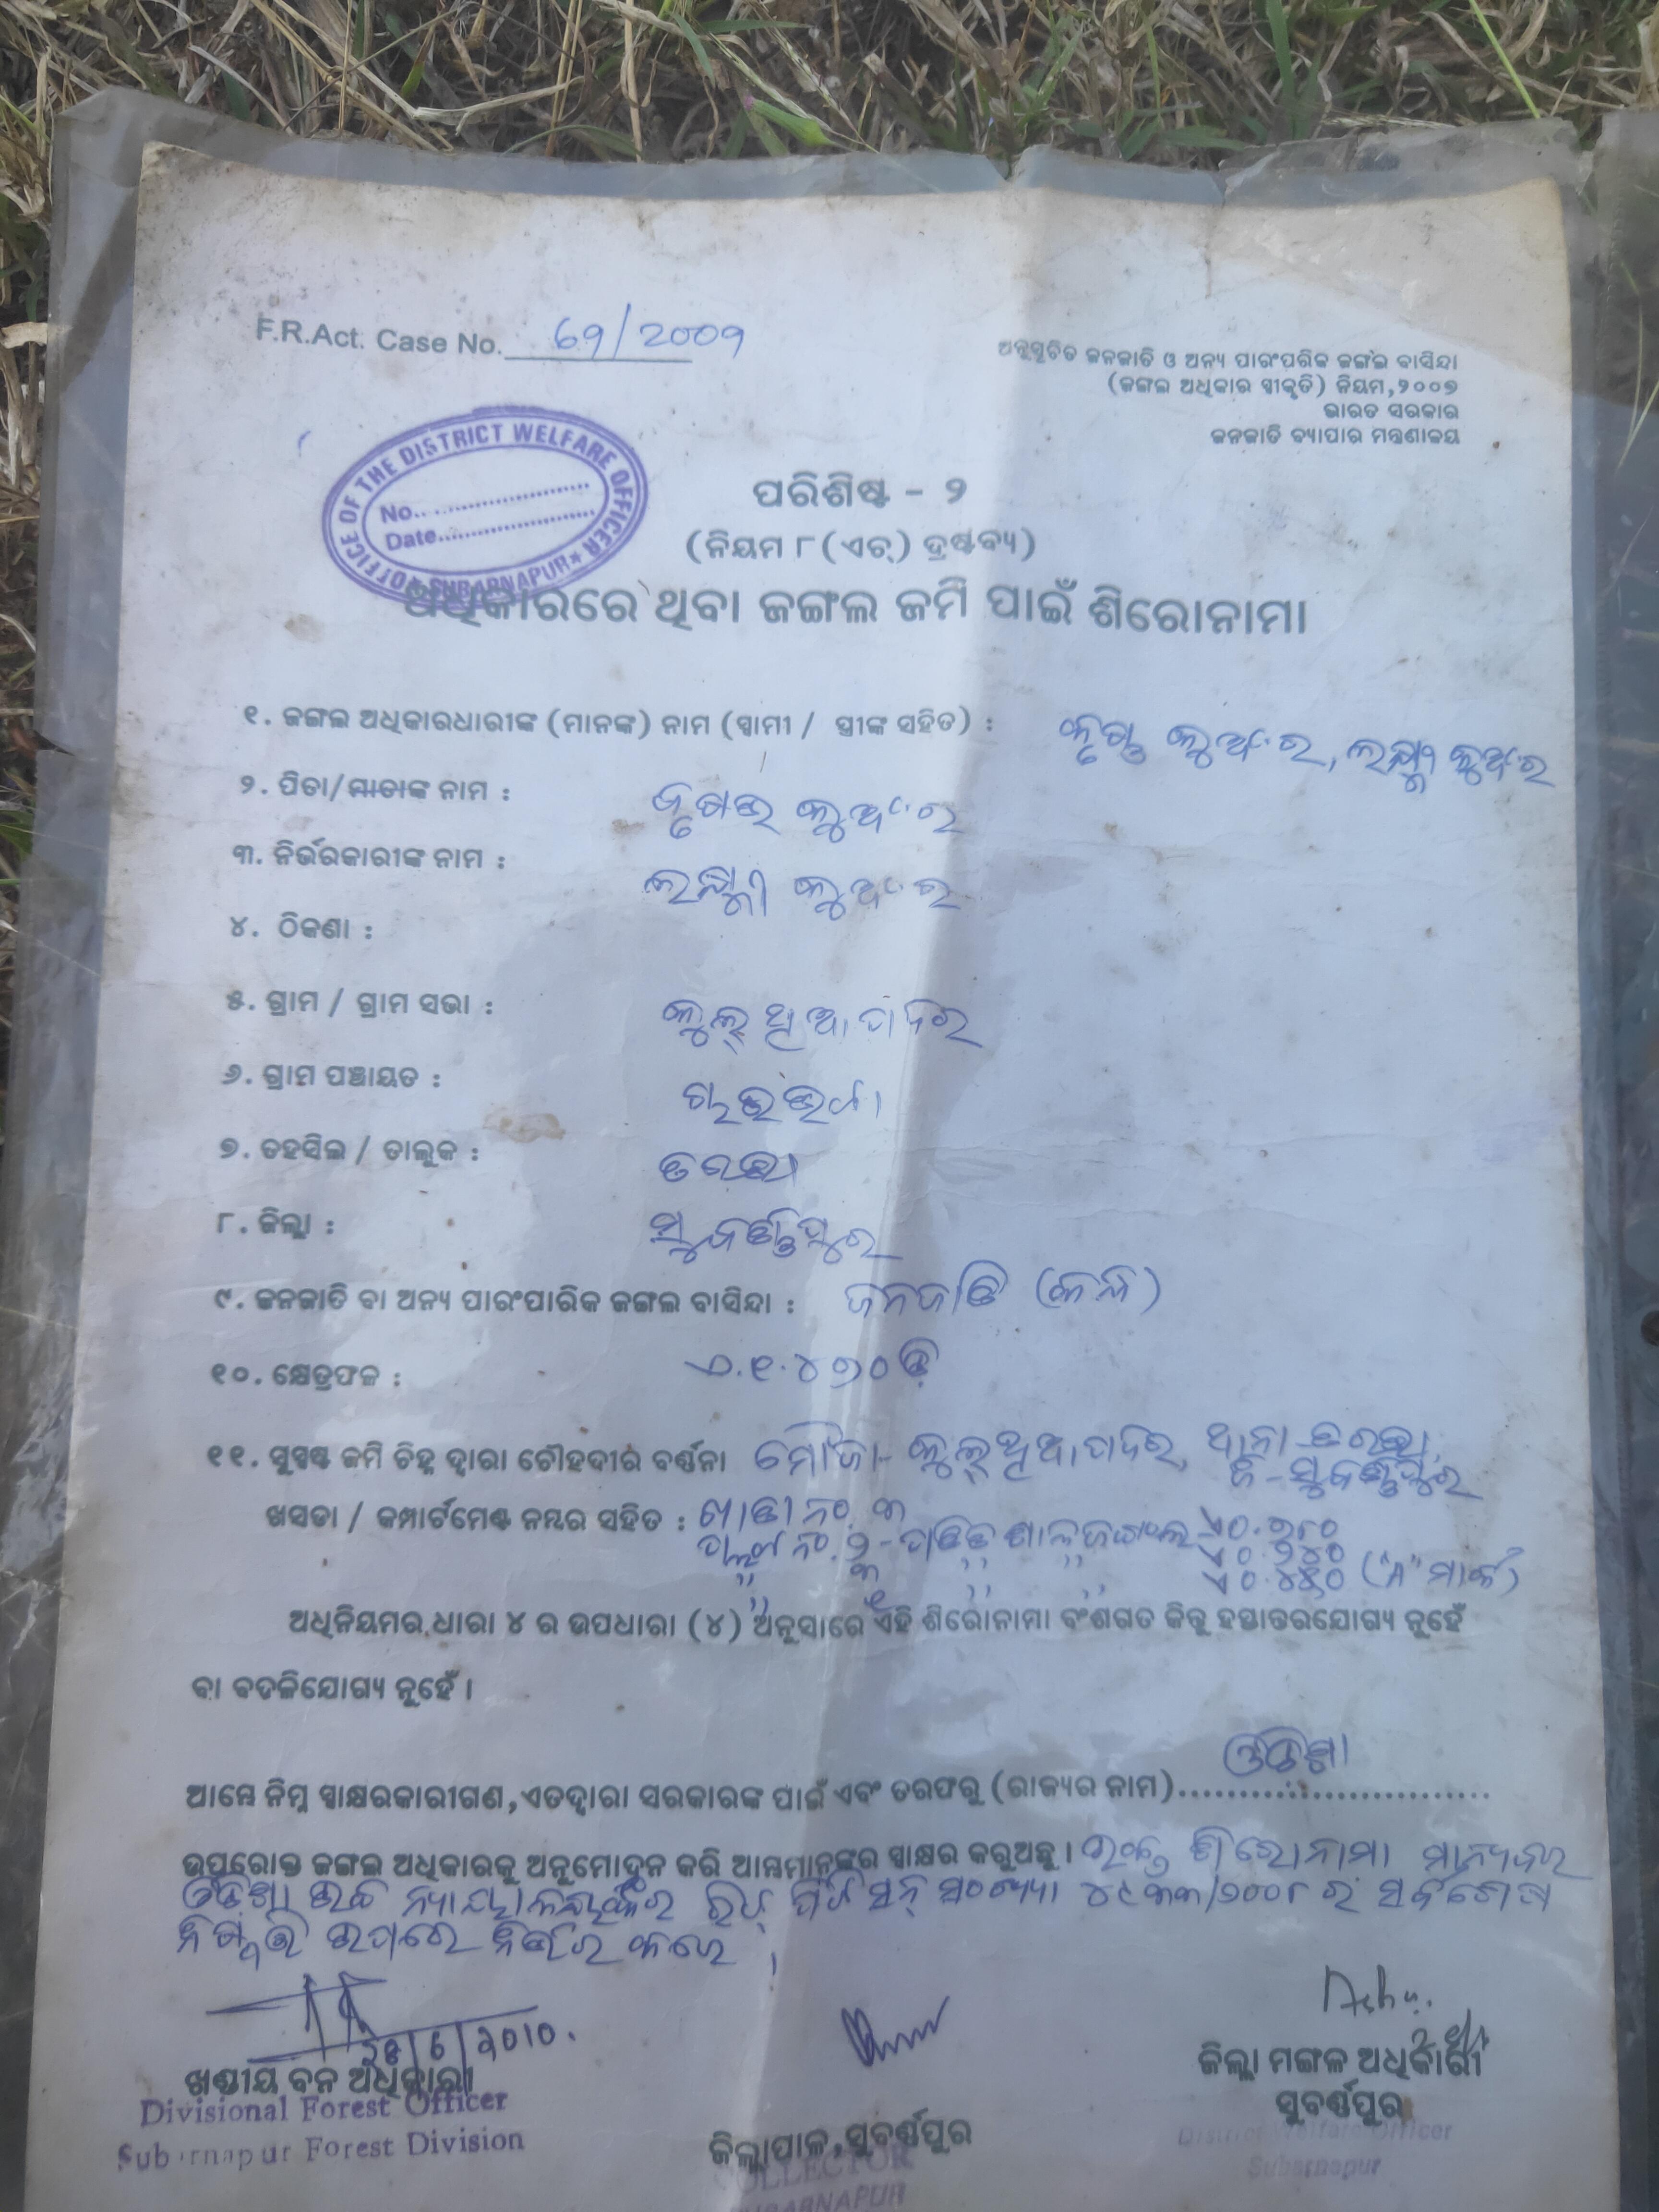 F.R.Act. Case No. 69/2009
ଅନୁସୂଚିତ ଜନଜାତି ଓ ଅନ୍ୟ ପାରଂପରିକ ଜଙ୍ଗଲ ବାସିନ୍ଦା
(ଜଙ୍ଗଲ ଅଧିକାର ସ୍ୱୀକୃତି) ନିୟମ,୨୦୦୭
ଭାରତ ସରକାର
ଜନଜାତି ବ୍ୟାପାର ମନ୍ତ୍ରଣାଳୟ
OFFICE OF THE DISTRICT WELFARE OFFICER ★ SUBARNAPUR ★
No.
Date
ପରିଶିଷ୍ଟ - ୨
(ନିୟମ ୮(ଏଚ୍) ଦ୍ରଷ୍ଟବ୍ୟ)
ଅଧିକାରରେ ଥିବା ଜଙ୍ଗଲ ଜମି ପାଇଁ ଶିରୋନାମା
୧. ଜଙ୍ଗଲ ଅଧିକାରଧାରୀଙ୍କ (ମାନଙ୍କ) ନାମ (ସ୍ୱାମୀ / ସ୍ତ୍ରୀଙ୍କ ସହିତ) : କୃଷ୍ଣ କୁଅଁର, ଲକ୍ଷ୍ମୀ କୁଅଁର
୨. ପିତା/ମାତାଙ୍କ ନାମ : କୁଅଁର
୩. ନିର୍ଭରକାରୀଙ୍କ ନାମ : ଲକ୍ଷ୍ମୀ କୁଅଁର
୪. ଠିକଣା :
୫. ଗ୍ରାମ / ଗ୍ରାମ ସଭା :
୬. ଗ୍ରାମ ପଞ୍ଚାୟତ :
୭. ତହସିଲ / ତାଲୁକ : ତରଭା
୮. ଜିଲ୍ଲା : ସୁବର୍ଣ୍ଣପୁର
୯. ଜନଜାତି ବା ଅନ୍ୟ ପାରଂପାରିକ ଜଙ୍ଗଲ ବାସିନ୍ଦା : ଜନଜାତି (କନ୍ଧ)
୧୦. କ୍ଷେତ୍ରଫଳ : ଏ.୧.୪୭୦ ଡି
୧୧. ସୁସ୍ପଷ୍ଟ ଜମି ଚିହ୍ନ ଦ୍ୱାରା ଚୌହଦୀର ବର୍ଣ୍ଣନା ମୌଜା- ଥାନା-ତରଭା,
ଜି-ସୁବର୍ଣ୍ଣପୁର
ଖସଡା / କମ୍ପାର୍ଟମେଣ୍ଟ ନମ୍ବର ସହିତ : ଖାତା ନଂ. ୩
("A" ମାର୍କ)
ଅଧିନିୟମର ଧାରା ୪ ର ଉପଧାରା (୪) ଅନୁସାରେ ଏହି ଶିରୋନାମା ବଂଶଗତ କିନ୍ତୁ ହସ୍ତାନ୍ତରଯୋଗ୍ୟ ନୁହେଁ
ବା ବଦଳିଯୋଗ୍ୟ ନୁହେଁ ।
ଓଡିଶା
ଆମ୍ଭେ ନିମ୍ନ ସ୍ୱାକ୍ଷରକାରୀଗଣ,ଏତଦ୍ୱାରା ସରକାରଙ୍କ ପାଇଁ ଏବଂ ତରଫରୁ (ରାଜ୍ୟର ନାମ)
ଉପରୋକ୍ତ ଜଙ୍ଗଲ ଅଧିକାରକୁ ଅନୁମୋଦନ କରି ଆମ୍ଭମାନଙ୍କର ସ୍ୱାକ୍ଷର କରୁଅଛୁ । ଉକ୍ତ ଶିରୋନାମା ମାନ୍ୟବର
ଓଡିଶା ଉଚ୍ଚ ନ୍ୟାୟାଳୟଙ୍କର ରିଟ୍ ପିଟିସନ୍ ସଂଖ୍ୟା ୪୯୩୩/୨୦୦୮ ର ସର୍ବଶେଷ
ନିଷ୍ପତ୍ତି ଉପରେ ନିର୍ଭର କରେ ।
28/6/2010.
ଖଣ୍ଡୀୟ ବନ ଅଧିକାରୀ
Divisional Forest Officer
Subarnapur Forest Division
ଜିଲ୍ଲାପାଳ,ସୁବର୍ଣ୍ଣପୁର
COLLECTOR
SUBARNAPUR
ଜିଲ୍ଲା ମଙ୍ଗଳ ଅଧିକାରୀ
ସୁବର୍ଣ୍ଣପୁର
District Welfare Officer
Subarnapur